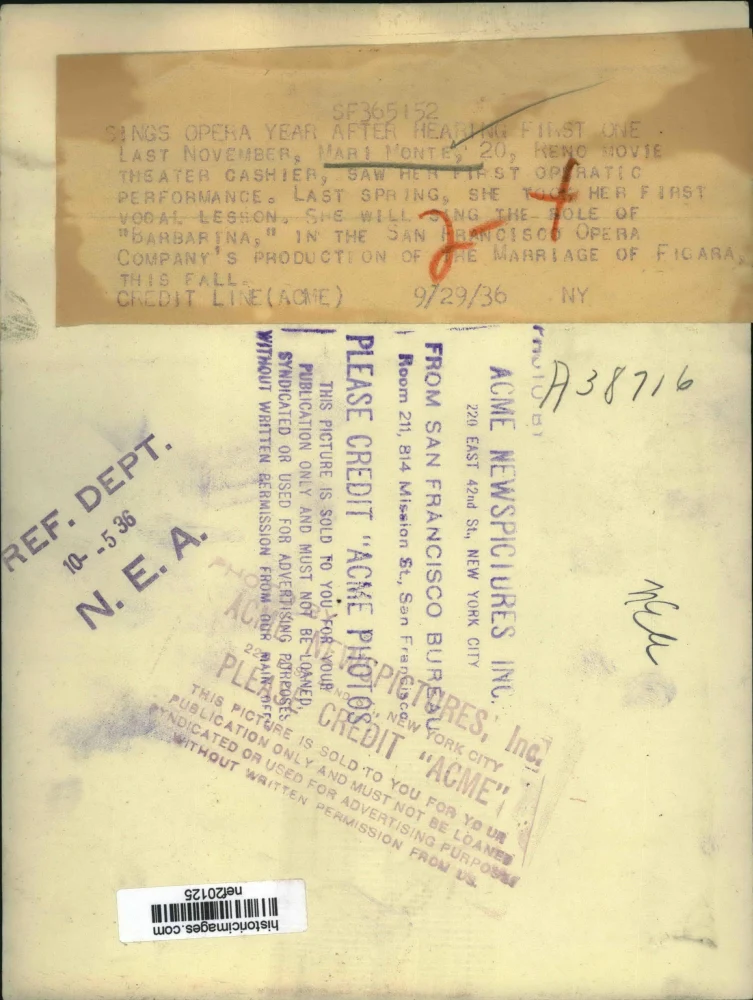 SF365152
SINGS OPERA YEAR AFTER HEARING FIRST ONE
LAST NOVEMBER, MARI MONTE, 20, RENO MOVIE
THEATER CASHIER, SAW HER FIRST OPERATIC
PERFORMANCE. LAST SPRING, SHE TOOK HER FIRST
VOCAL LESSON. SHE WILL SING THE ROLE OF
"BARBARINA," IN THE SAN FRANCISCO OPERA
COMPANY'S PRODUCTION OF THE MARRIAGE OF FIGARA,
THIS FALL.
CREDIT LINE(ACME) 9/29/36 NY
A38716
ACME NEWSPICTURES INC.
220 EAST 42nd St., NEW YORK CITY
FROM SAN FRANCISCO BUREAU
Room 211, 814 Mission St., San Francisco
PLEASE CREDIT "ACME PHOTOS"
THIS PICTURE IS SOLD TO YOU FOR YOUR
PUBLICATION ONLY AND MUST NOT BE LOANED,
SYNDICATED OR USED FOR ADVERTISING PURPOSES
WITHOUT WRITTEN PERMISSION FROM OUR MAIN OFFICE
REF. DEPT.
10 - 5 36
N. E. A.
ACME NEWSPICTURES, Inc.
NEW YORK CITY
PLEASE CREDIT "ACME"
THIS PICTURE IS SOLD TO YOU FOR YOUR
PUBLICATION ONLY AND MUST NOT BE LOANED
SYNDICATED OR USED FOR ADVERTISING PURPOSES
WITHOUT WRITTEN PERMISSION FROM US.
historicimages.com
nef20125